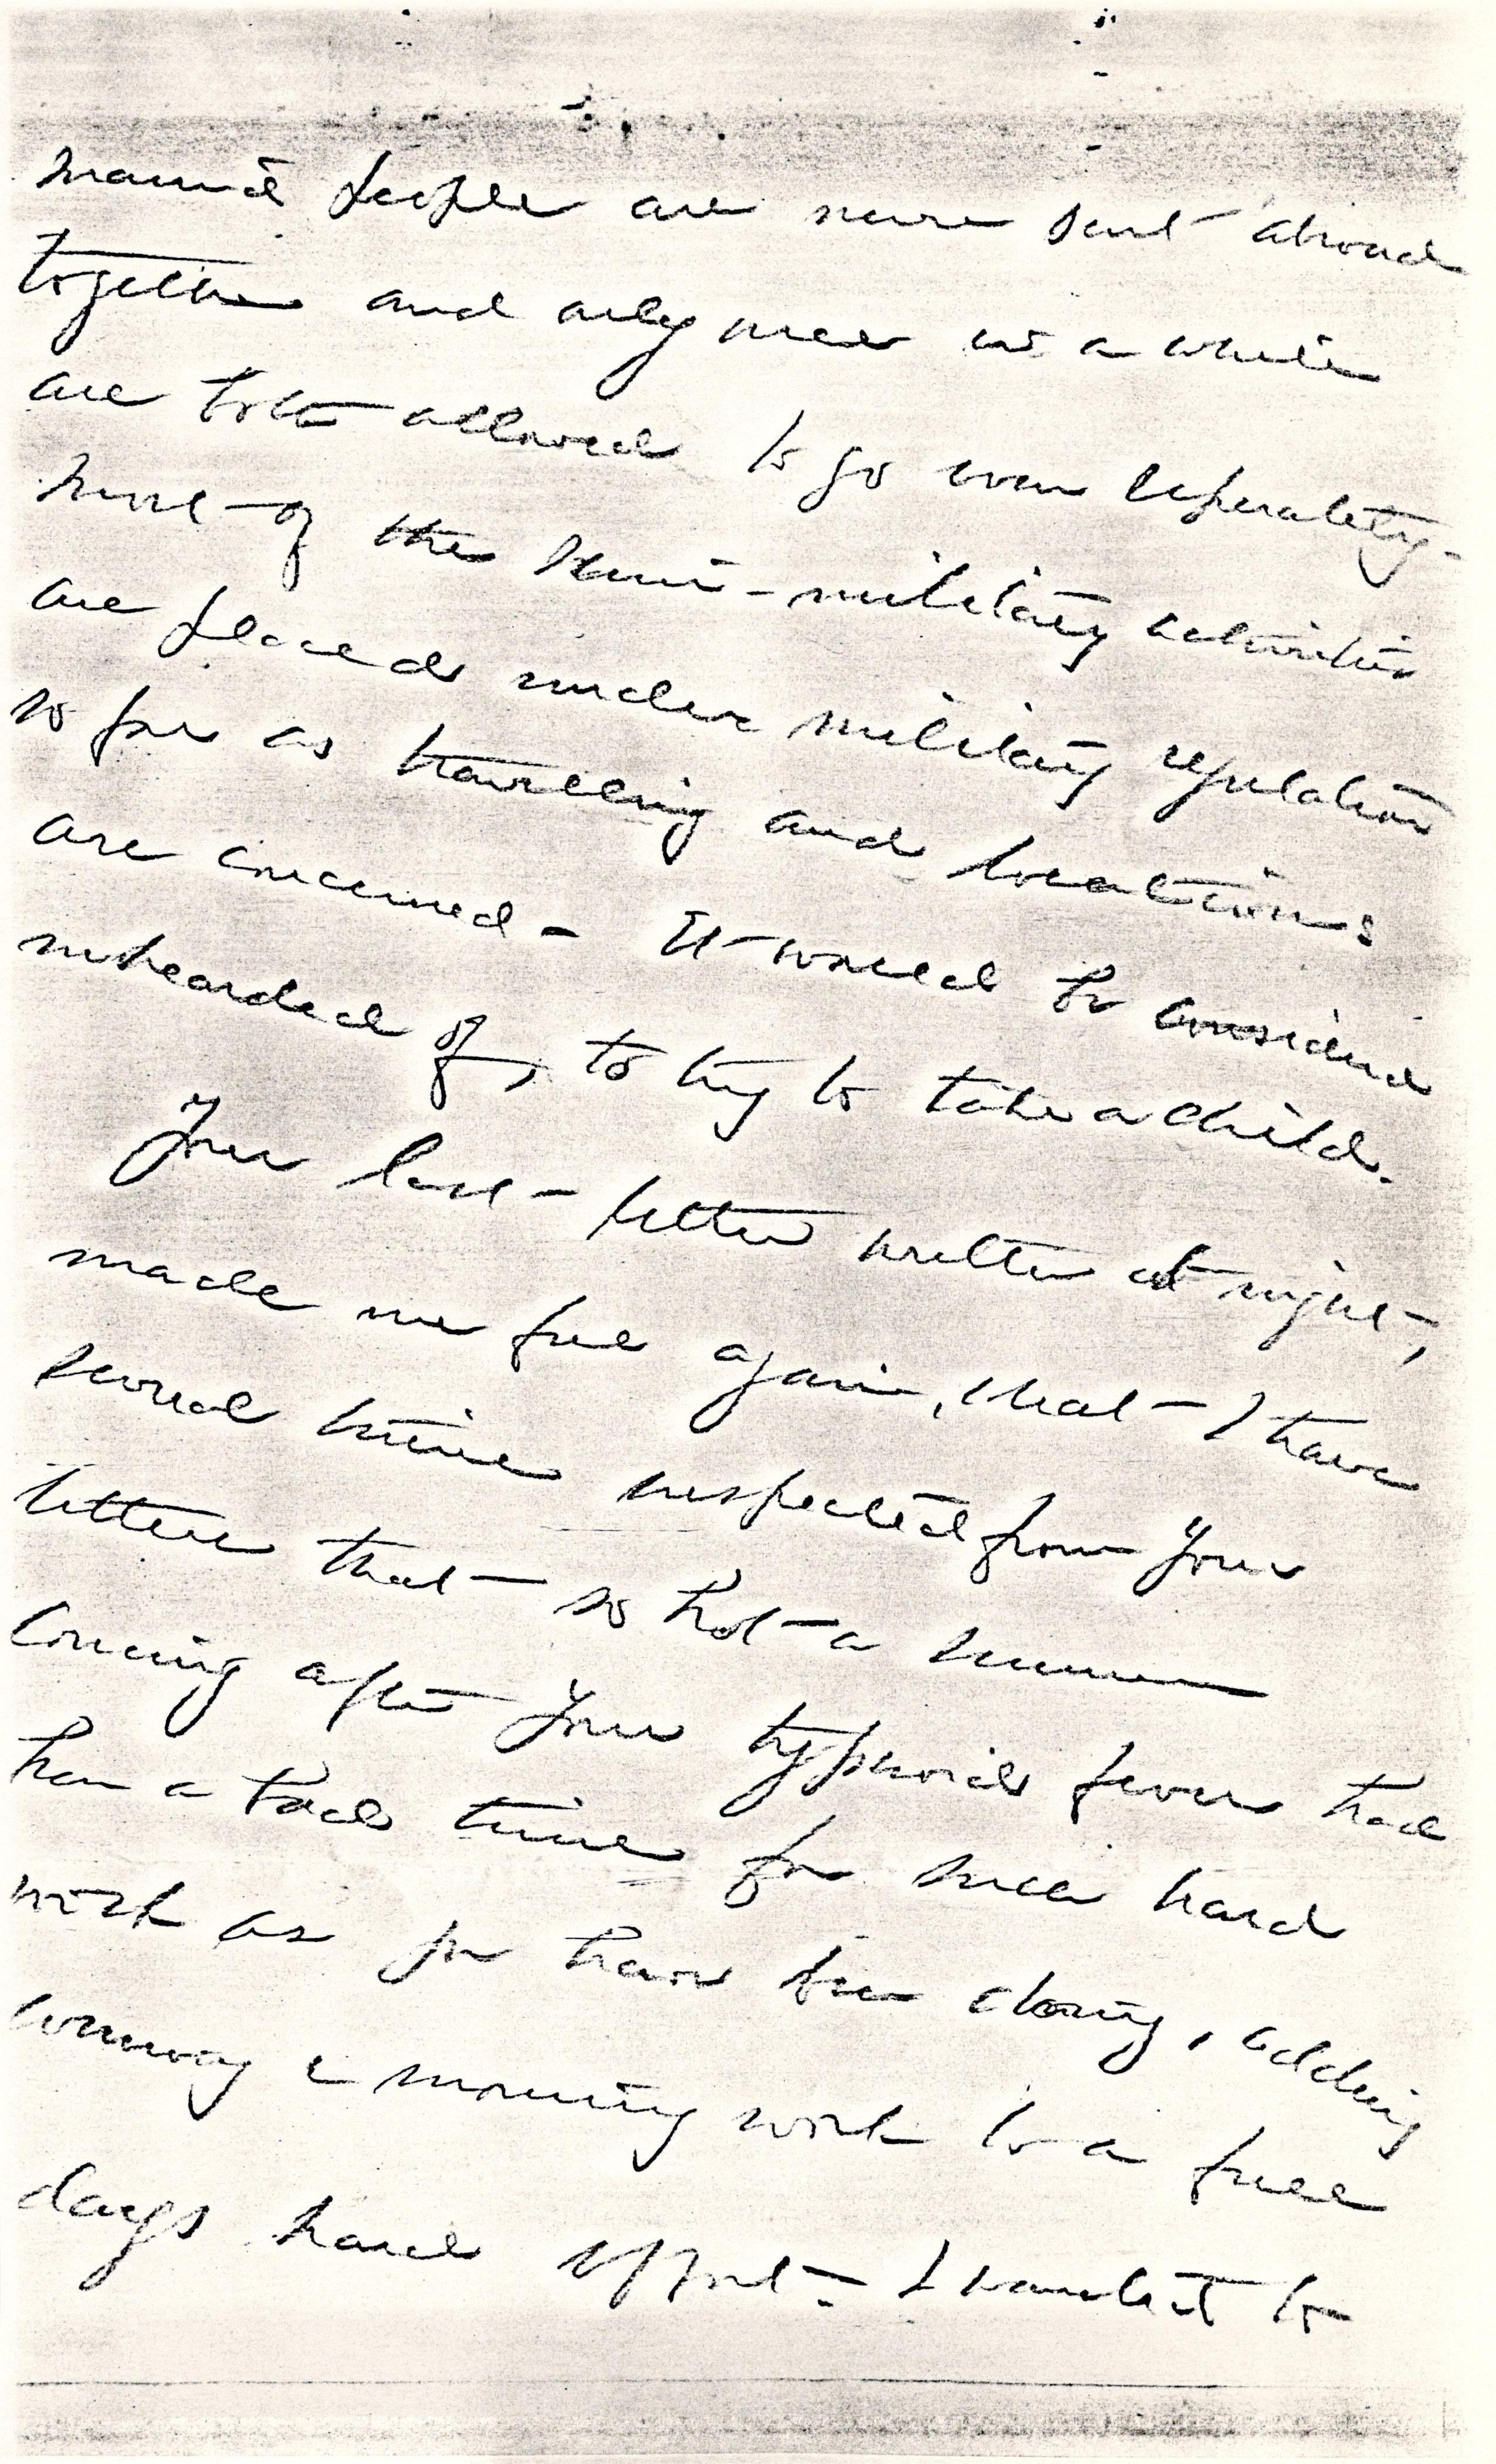 married people are never sent abroad
together and only once in a while
are both allowed to go even seperately -
most of the semi-military activities
are placed under military regulation
so far as travelling and locations
are concerned - It would be considered
unhearded of, to try to take a child.
Your last letter written at night,
made me feel again, that I have
several times suspected from your
letters that so hot a summer
coming after your typhoid fever had
been a bad time for such hard
work as you have been doing, adding
evening & morning work to a full
days hard effort - I wanted to